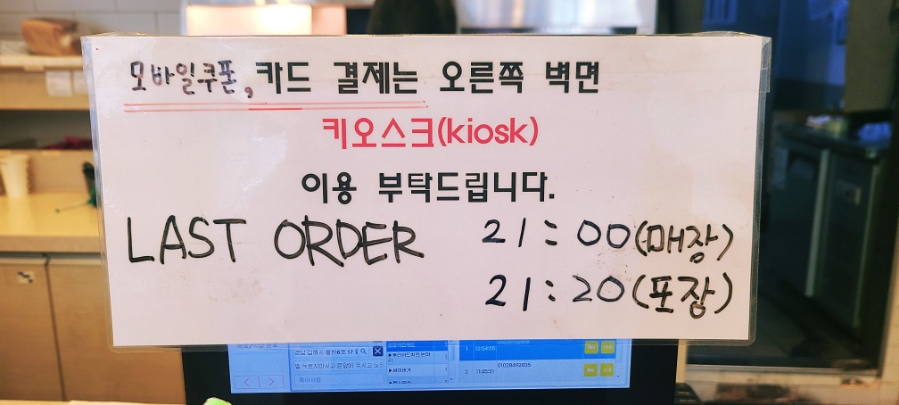 모바일쿠폰, 카드 결제는 오른쪽 벽면
키오스크(kiosk)
이용 부탁드립니다.
LAST ORDER 21:00(매장)
21:20(포장)